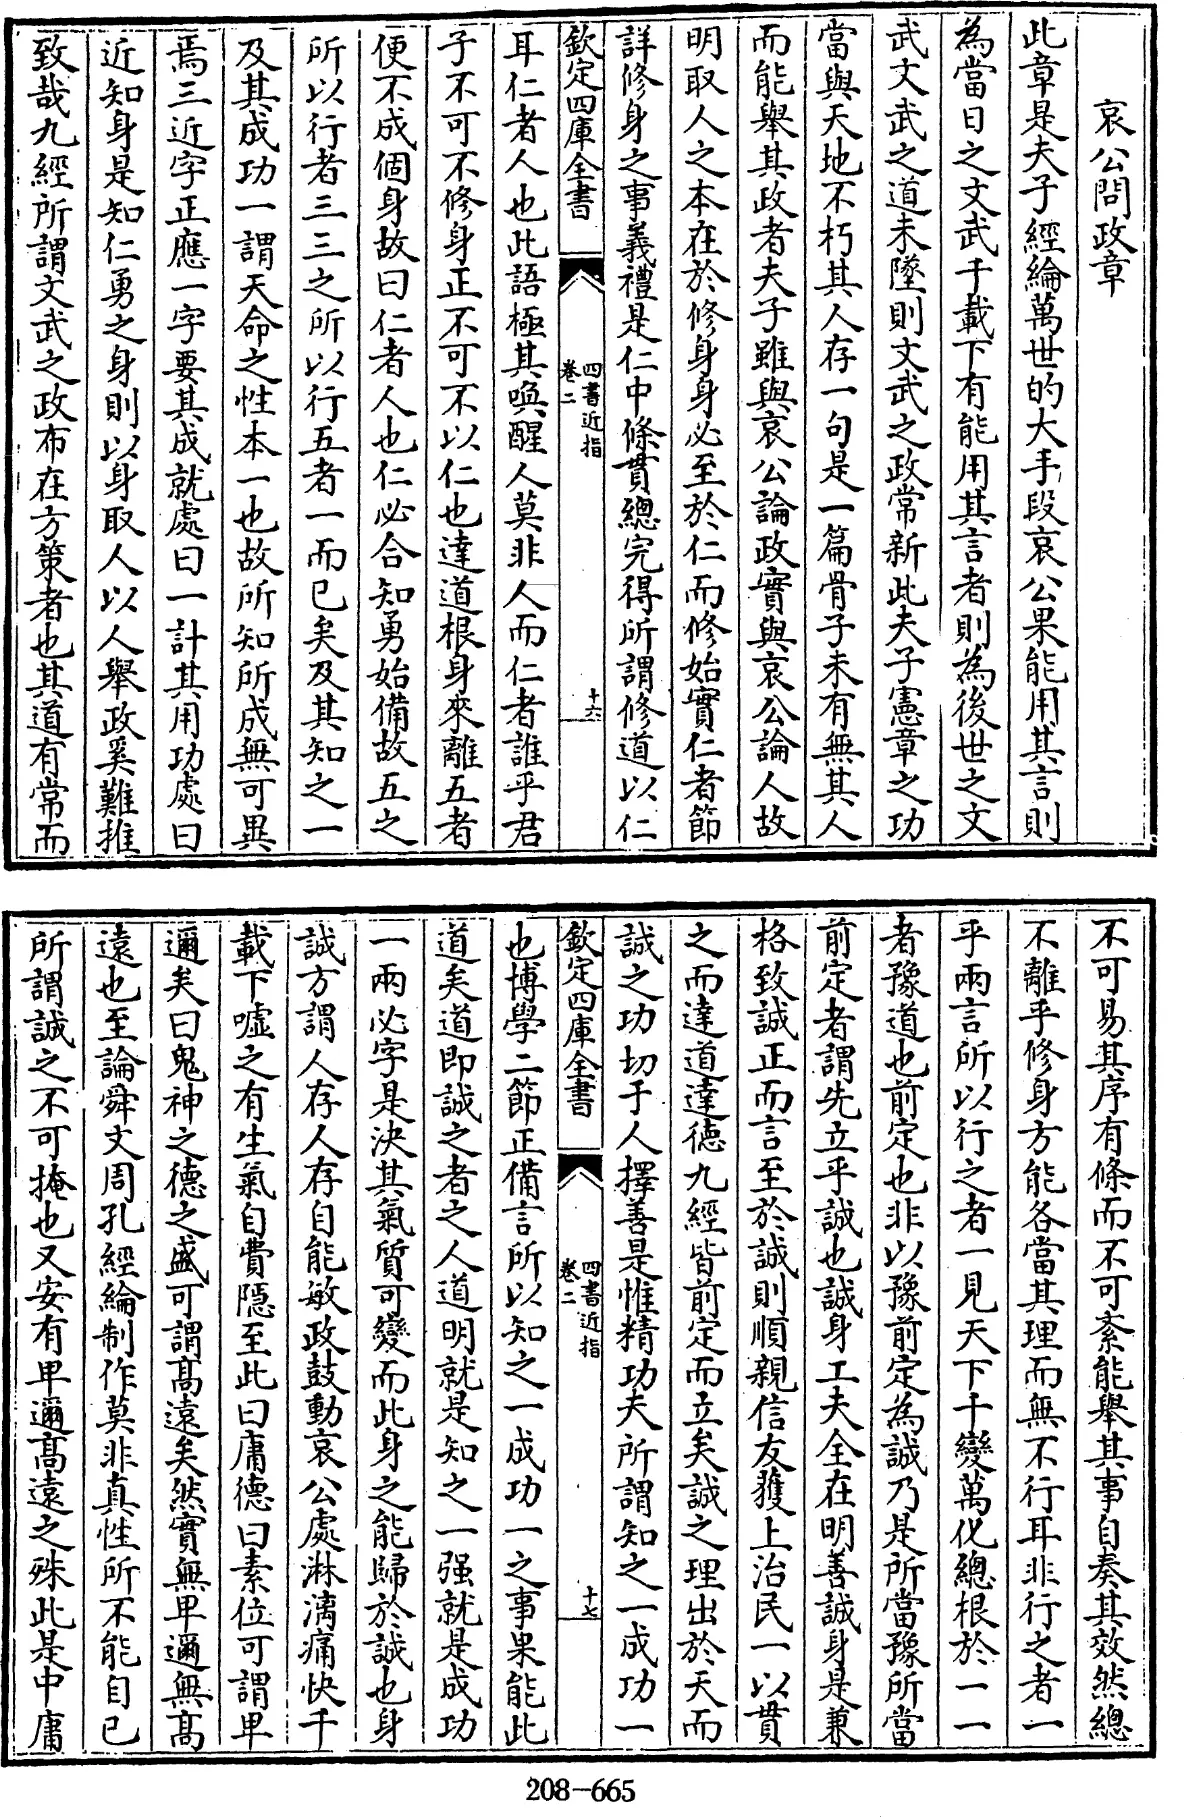 哀公問政章
此章是夫子經綸萬世的大手段哀公果能用其言則
為當日之文武千載下有能用其言者則為後世之文
武文武之道未墜則文武之政常新此夫子憲章之功
當與天地不朽其人存一句是一篇骨子未有無其人
而能舉其政者夫子雖與哀公論政實與哀公論人故
明取人之本在於修身身必至於仁而修始實仁者節
詳修身之事義禮是仁中條貫總完得所謂修道以仁
欽定四庫全書
四書近指
卷二
十六
耳仁者人也此語極其喚醒人莫非人而仁者誰乎君
子不可不修身正不可不以仁也達道根身來離五者
便不成個身故曰仁者人也仁必合知勇始備故五之
所以行者三三之所以行五者一而已矣及其知之一
及其成功一謂天命之性本一也故所知所成無可異
焉三近字正應一字要其成就處曰一計其用功處曰
近知身是知仁勇之身則以身取人以人舉政奚難推
致哉九經所謂文武之政布在方策者也其道有常而
不可易其序有條而不可紊能舉其事自奏其效然總
不離乎修身方能各當其理而無不行耳非行之者一
乎兩言所以行之者一見天下千變萬化總根於一一
者豫道也前定也非以豫前定為誠乃是所當豫所當
前定者謂先立乎誠也誠身工夫全在明善誠身是兼
格致誠正而言至於誠則順親信友獲上治民一以貫
之而達道達德九經皆前定而立矣誠之理出於天而
誠之功切于人擇善是惟精功夫所謂知之一成功一
欽定四庫全書
四書近指
卷二
十七
也博學二節正備言所以知之一成功一之事果能此
道矣道即誠之者之人道明就是知之一强就是成功
一兩必字是決其氣質可變而此身之能歸於誠也身
誠方謂人存人存自能敏政鼓動哀公處淋漓痛快千
載下噓之有生氣自費隱至此曰庸德曰素位可謂卑
邇矣曰鬼神之德之盛可謂高遠矣然實無卑邇無高
遠也至論舜文周孔經綸制作莫非真性所不能自已
所謂誠之不可掩也又安有卑邇高遠之殊此是中庸
208-665